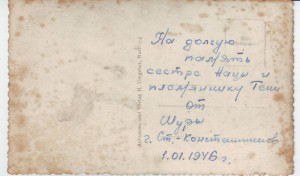 На долгую
память
сестре Наци и
племяннику Гени
от
Шуры
г. Ст.-Константинов
1.01.1946 г.